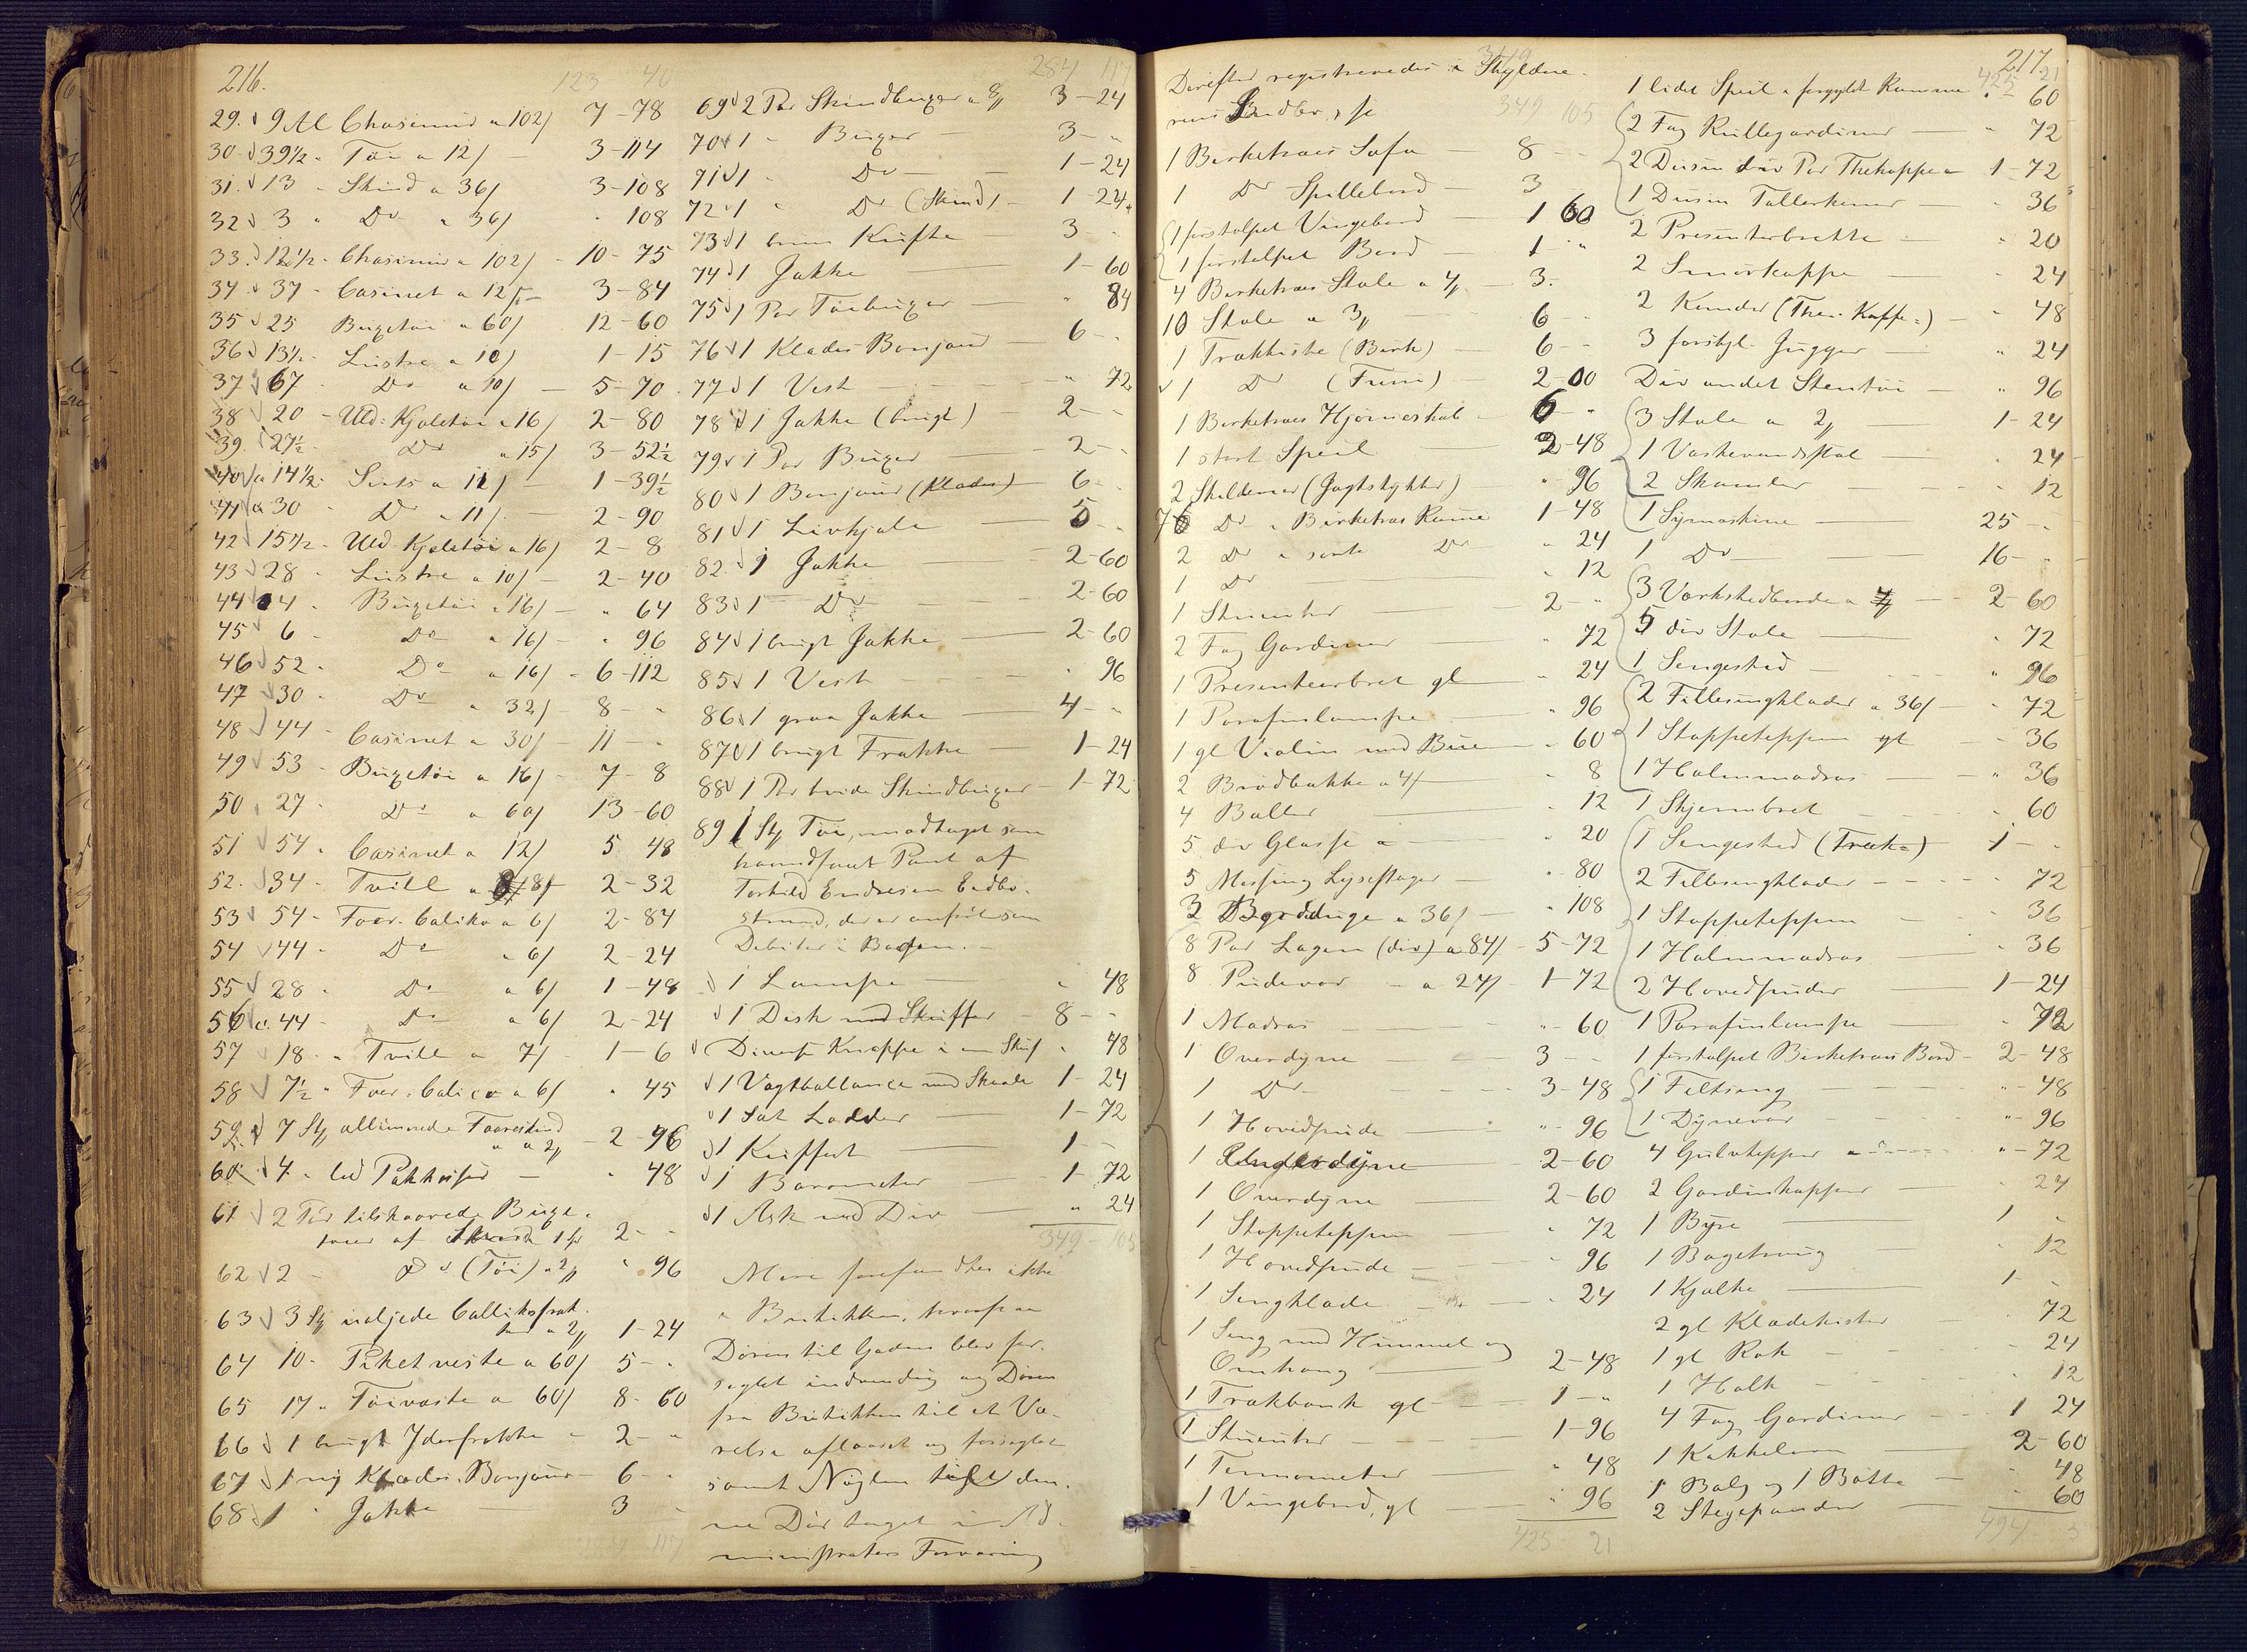 216.
123 40
29. 9 Al Chasimir a 102/ 7-78
30. 39½ " Tøi a 12/ 3-114
31. 13 " Skind a 36/ 3-108
32 3 " Do a 36/ " 108
33. 12½ " Chasimir a 102/ 10-75
34 37 " Casinet a 12/ 3-84
35 25 Buxetøi a 60/ 12-60
36 13½ " Lüstre a 10/ 1-15
37 67 Do a 10/ 5-70
38 20 - Uld: Kjoletøi a 16/ 2-80
39. 27½ Do a 15/ 3-52½
40 a 14½ Sirts a 11/ 1-39½
41 a 30 Do a 11/ 2-90
42 15½ - Uld Kjoletøi a 16/ 2-8
43 28 - Lüstre a 10/ 2-40
44 4 - Buxetøi a 16/ " 64
45 6 - Do a 16/ " 96
46 52 - Do a 16/ 6-112
47 30 - Do a 32/ 8 - "
48 44 - Casinet a 30/ 11 - "
49 53 - Buxetøi a 16/ 7-8
50 27 - Do a 60/ 13-60
51 54 - Casinet a 12/ 5 48
52. 34 - Tvill a 8/ 2-32
53 54 - Foer. Caliko a 6/ 2-84
54 44 - Do a 6/ 2-24
55 28 - Do a 6/ 1-48
56 a 44 - Do a 6/ 2-24
57 18 - " Tvill a 7/ 1-6
58 7½ " Foer. Calico a 6/ " 45
59 7 St allunede Faareskind
a 2 2-96
60 4 - led Pakhøser " 48
61 2 Par tilskaarede Buxe-
foer af Skind 1 2 - "
62 2 - Do (Tøi) a 2 " 96
63 3 St uldjede Callikofrak-
a 2 1-24
64 10 - Piket veste a 60/ 5 - "
65 17 " Tøiveste a 60/ 8-60
66 1 brugt Yderfrakke 2 - "
67 1 ny Klædes. Bonjour 6 - "
68 1 " Jakke 3
284 117
69 2 Par Skindbuxer a 3-24
70 1 " Buxer 3 - "
71 1 " Do 1-24
72 1 " Do (Skind) 1-24
73 1 brun Kufte 3 -
74 1 Jakke 1-60
75 1 Par Tøibuxer " 84
76 1 Klædes Bonjour 6 - "
77 1 Vest " 72
78 1 Jakke (brugt) 2 - -
79 1 Par Buxer 2 - -
80 1 Bonjour (Klædes) 6 -
81 1 Livkjole 5 - -
82. 1 Jakke 2-60
83 1 Do 2-60
84 1 brugt Jakke 2-60
85 1 Vest " 96
86 1 graa Jakke 4 - "
87 1 brugt Frakke 1-24
88 1 Par hvide Skindbuxer 1-72
89 1 St Tøi, modtaget som
haandfaaet Pant af
Torkild Endresen Eedbo-
strand, der er anført som
Debitor i Bogen.
1 Lampe " 48
1 Disk med Skuffer 8 - -
Diverse Knappe i en Skuf " 48
1 Vægtballance med Skaale 1-24
1 Sæt Lodder 1-72
1 Kuffert 1 - -
1 Barometer 1-72
1 Æsk med Div " 24
349 - 105
Mere forefandtes ikke
i Butikken, hvorpaa
Døren til Gaden blev for-
seglet indvendig og Døren
fra Butikken til et Væ-
relse aflaaset og forseglet
samt Nøglen til den-
ne Dør taget i Ad-
ministrators Forvaring
217
Derefter registreredes i Skyldne-
rens
349 105
1 Birketræes Sofa 8 - -
1 Do Spillebord 3
1 forstolpet Vingebord 1 60
1 forstolpet Bord 1 - "
4 Birketræs Stole a 3 -
10 Stole a 3 6 - -
1 Trækkiste (Birk) 6 - -
1 Do (Furu) 2-00
1 Birketræes Hjørneskab 6 - "
1 stort Speil 2-48
2 Skilderier (Jagtstykker) " 96
76 Do i Birketræs Rame 1-48
2 Do i sorte Do " 24
1 Do " 12
1 Stueuhr 2 - "
2 Fag Gardiner " 72
1 Presenteerbret gl " 24
1 Parafinlampe " 96
1 gl Violin med Bue " 60
2 Brødbakke a 4/ " 8
4 Boller " 12
5 div Glasse a " 20
5 Messing Lysestager " 80
3 Bordduge a 36/ " 108
8 Par Lagen (div) a 84/ 5-72
8 Pudevar a 24/ 1-72
1 Madras " 60
1 Overdyne 3 - -
1 Do 3-48
1 Hovedpude " 96
1 Underdyne 2-60
1 Overdyne 2-60
1 Stoppeteppen " 72
1 Hovedpude " 96
1 Sengklæde " 24
1 Seng med Himmel og
Omhang 2-48
1 Trækbænk gl 1 - "
1 Stueuhr 1-96
1 Termometer " 48
1 Vingebord, gl " 96
425 - 21
425 21
1 lidet Speil i forgyldt Ramme " 60
2 Fag Rullegardiner " 72
2 Dusin div Par Thekoppe 1-72
1 Dusin Tallerkener " 36
2 Presenterbrette " 20
2 Smørkoppe " 24
2 Kander (The. Kaffe-) " 48
3 forskjl. Jugger " 24
Div andet Stentøi " 96
3 Stole a 2 1-24
1 Vaskevandsstol " 24
2 Skamler " 12
1 Symaskine 25 - -
1 Do 16 - "
3 Værkstedborde a 2-60
5 div Stole " 72
1 Sengested " 96
2 Fillesengklæder a 36/ " 72
1 Stoppeteppen gl " 36
1 Halmmadras " 36
1 Skjermbret " 60
1 Sengested (Træk-) 1 - -
2 Fillesengklæder " 72
1 Stoppeteppen " 36
1 Halmmadras " 36
2 Hovedpuder 1-24
1 Parafinlampe " 72
1 forstolpet Birketræs Bord 2-48
1 Feltseng " 48
1 Dynevar " 96
4 Gulvtepper " 72
2 Gardinkapper " 24
1 Bysse 1 -
1 Bagetraug " 12
1 Kjælke 1 -
2 gl Klædekister " 72
1 gl Rok " 24
1 Holk " 12
4 Fag Gardiner 1 24
1 Kakkelovn 2-60
1 Balg og 1 Bøtte " 48
2 Stegepander " 60
494 - 3